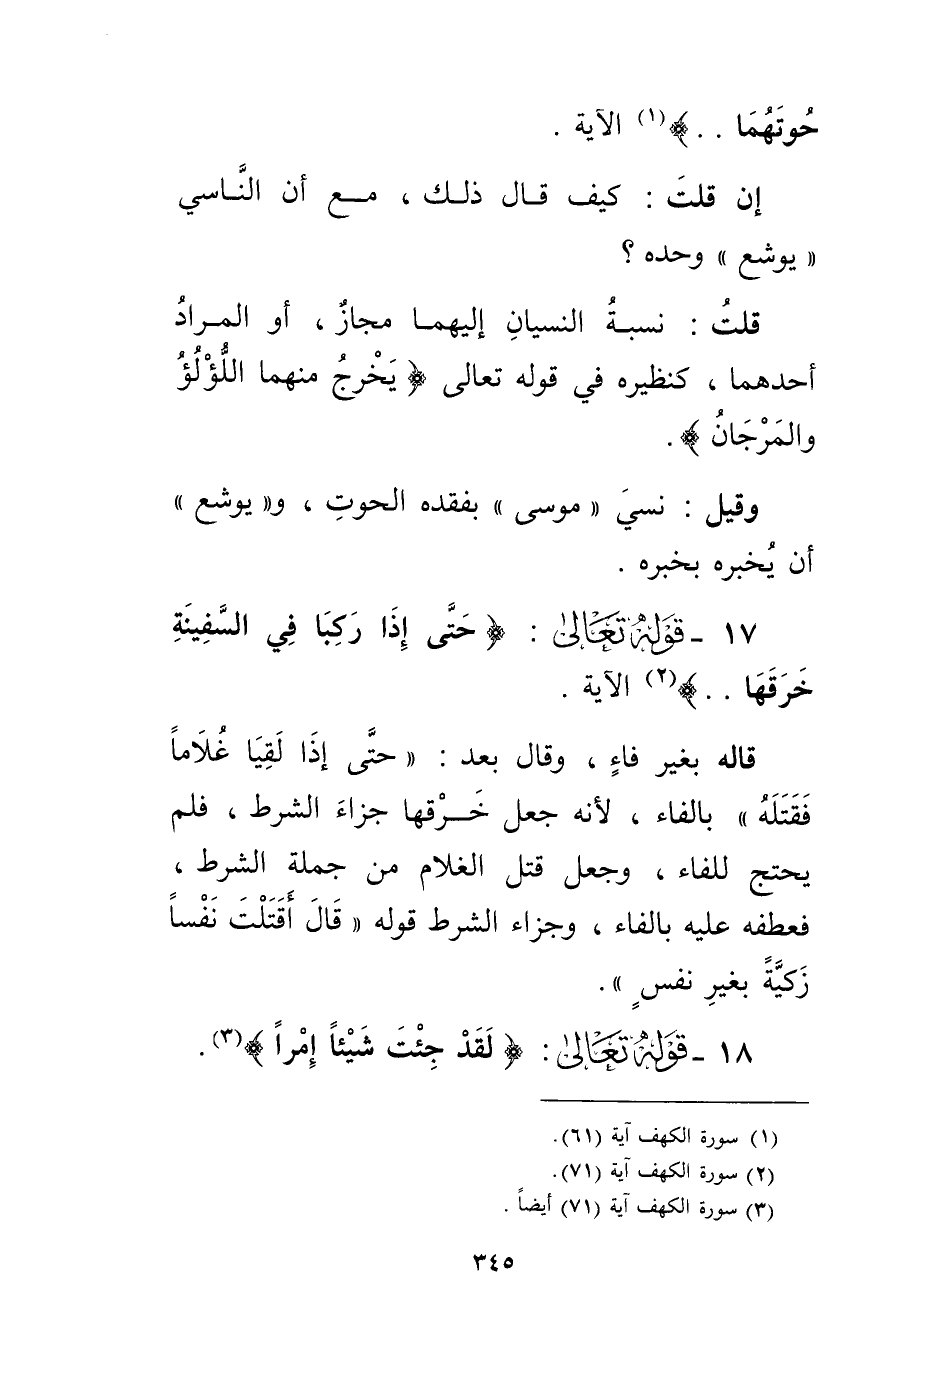 حُوتَهُمَا . . ﴾(١) الآية .
إن قلتَ : كيف قـال ذلـك ، مـــع أن النَّـاسي
« يوشع » وحده ؟
قلتُ : نسبـةُ النسيانِ إليهمـا مجازٌ ، أو المـرادُ
أحدهما ، كنظيره في قوله تعالى ﴿ يَخْرجُ منهما اللُّؤْلُؤُ
والمَرْجَانُ ﴾ .
وقيل : نسيَ « موسى » بفقده الحوتِ ، و« يوشع »
أن يُخبره بخبره .
١٧ ـ قَوْلُهُ تَعَالَىٰ : ﴿ حَتَّى إِذَا رَكِبَا فِي السَّفِينَةِ
خَرَقَهَا . . ﴾(٢) الآية .
قاله بغير فاءٍ ، وقال بعد : « حتَّى إذَا لَقِيَا غُلَاماً
فَقَتَلَهُ » بالفاء ، لأنه جعل خَـــرْقها جزاءَ الشرط ، فلم
يحتج للفاء ، وجعل قتل الغلام من جملة الشرط ،
فعطفه عليه بالفاء ، وجزاء الشرط قوله « قَالَ أَقَتَلْتَ نَفْساً
زَكيَّةً بغيرِ نفسٍ » .
١٨ ـ قَوْلُهُ تَعَالَىٰ : ﴿ لَقَدْ جِئْتَ شَيْئاً إمْراً ﴾(٣) .
(١) سورة الكهف آية (٦١) .
(٢) سورة الكهف آية (٧١) .
(٣) سورة الكهف آية (٧١) أيضاً .
٣٤٥